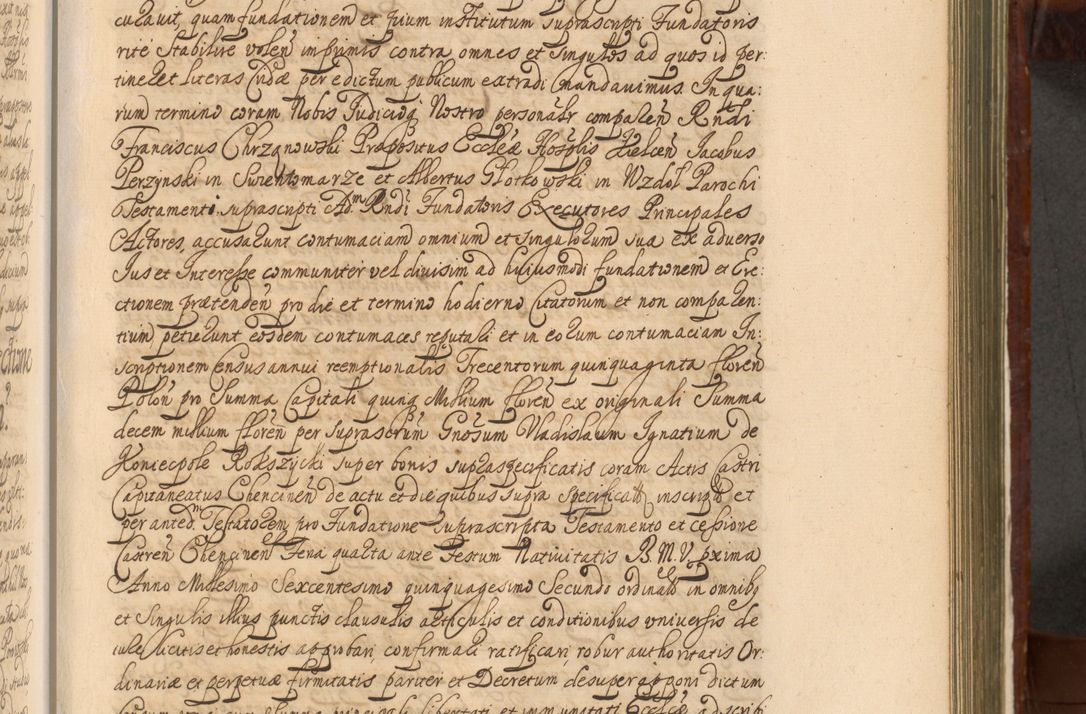 curavit, quam fundationem et pium institutum suprascripti Fundatoris
rite stabilire volen̄ in primis contra omnes et singulos ad quos id per:
tineret literas Cridæ per edictum publicum extradi mandavimus. In qua:
rum termino coram Nobis Judicioq̨ Nostro personalr̄ comparen̄ Rn̄di
Franciscus Chrząnowski Præpositus Eccleæ Hosplis Kielcen̄ Jacobus
Perzynski in Swientomarze et Albertus Głotkowski in Wzdoł Parochi
Testamenti suprascripti Adm Rndi Fundatoris Executores Principales
Actores, accusarunt contumaciam omnium et singulorum sua ex adverso
Jus et Interesse communiter vel divisim ad hujusmodi fundationem et Ere:
ctionem prætenden̄ pro die et termino hodierno Citatorum et non comparen:
tium, petierunt eosdem contumaces reputari et in eorum contumaciam In:
scriptionem Census annui reemptionalis Trecentorum quinquaginta floren̄
Polon̄ pro Summa Capitali quinq̨ Millium floren̄ ex originali Summa
decem millium floren̄ per suprascrūm Gnosum Vladislaum Ignatium de
Koniecpole Rokszycki super bonis supraspecificatis coram Actis Castri
Capitaneatus Chencinen̄ de actu et die quibus supra specificatt inscript et
per anted̄m Testatorem pro Fundatione suprascripta Testamento et cessione
Castren̄ Chencinen̄ Feria quarta ante Festum Nativitatis B. M. V. pxima
Anno Millesimo Sexcentesimo quinquagesimo Secundo ordinato in omnibq
et singulis illius punctis clausulis articulis et conditionibus universis de
iure licitis et honestis approbari, confirmari ratificari, robur authoritatis Or:
dinariæ et perpetuæ firmitatis pariter et Decretum desuper apponi dictum
principali libertati et immunitati Eccleæ adscribi